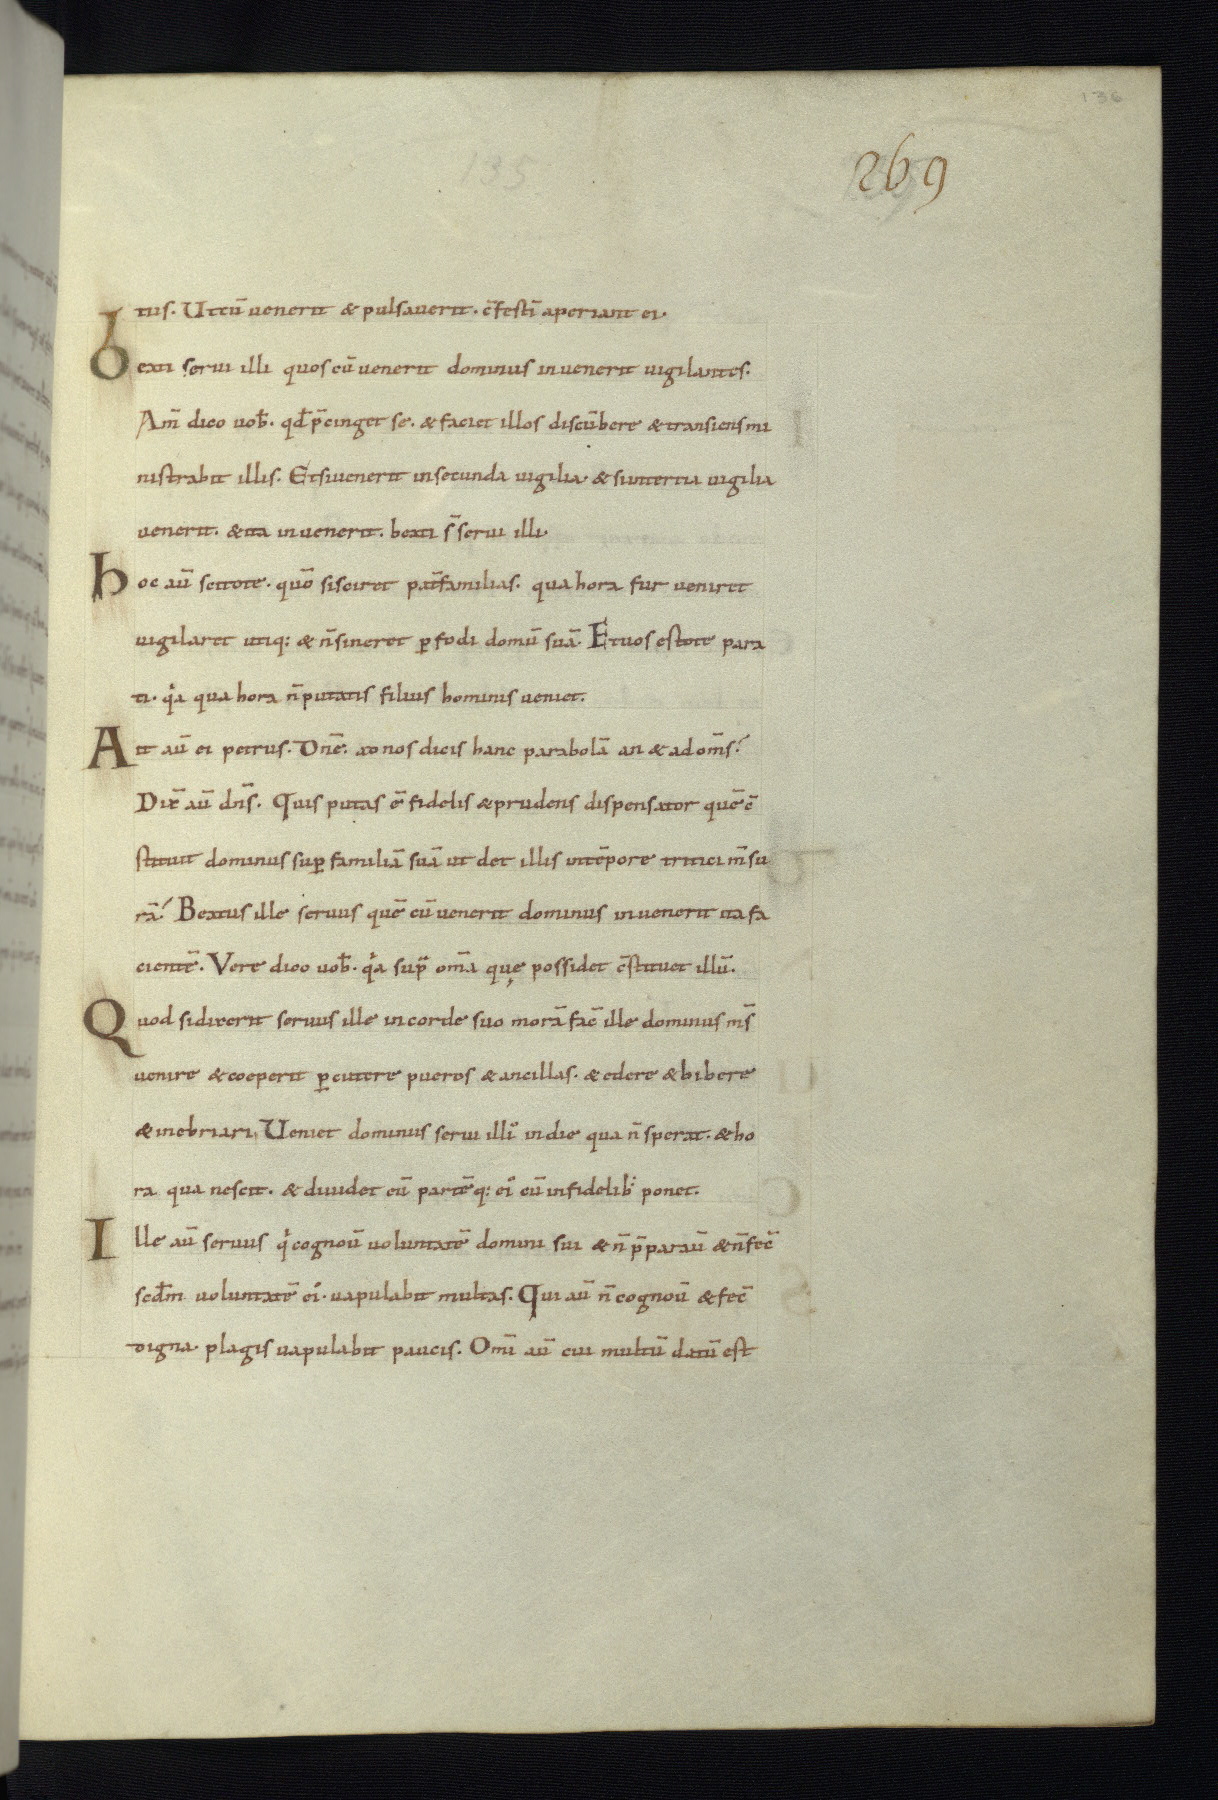 136
135
269
tus. Ut cū venerit & pulsaverit. c̄festī aperiant ei.
beati servi illi quos cū venerit dominus invenerit vigilantes.
Am̄ dico vob̄. qd̄ p̄cinget se. & faciet illos discūbere & transiens mi
nistrabit illis. Et si venerit in secunda vigilia & si in tertia vigilia
venerit. & ita invenerit. beati s̄ servi illi.
hoc aū scitote. quō si sciret pat̄familias. qua hora fur veniret
vigilaret utiq: & n̄ sineret ꝑfodi domū suā. Et vos estote para
ti. qͥa qua hora n̄ putatis filius hominis veniet.
Ait aū ei petrus. Dn̄e. ad nos dicis hanc parabolā an & ad om̄s?
Dix̄ aū dn̄s. Quis putas ē fidelis & prudens dispensator quē c̄
stituit dominus suꝑ familiā suā ut det illis in tēpore tritici m̄su
rā? Beatus ille servus quē cū venerit dominus invenerit ita fa
cientē. Vere dico vob̄. qͥa sup̄ om̄a quę possidet c̄stituet illū.
Quod si dixerit servus ille in corde suo morā fac̄ ille dominus m̄s
venire & coeperit ꝑcutere pueros & ancillas. & edere & bibere
& inebriari, Veniet dominus servi illiꝰ in die qua n̄ sperat. & ho
ra qua nescit. & dividet eū partēq: eiꝰ cū infidelibꝰ ponet.
Ille aū servus qͥ cognoū voluntatē domini sui & n̄ p̄paraū & n̄ fec̄
scd̄m voluntatē eiꝰ. vapulabit multas. Qui aū n̄ cognoū & fec̄
digna plagis vapulabit paucis. Omī aū cui multū datū est